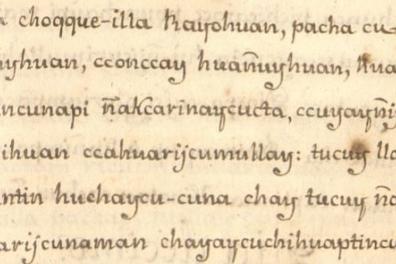 choqque-illa Kayohuan, pacha cu
uyhuan, cconccay huañuyhuan, hua
ncunapi ñakcarinaycucta, ccuyayñi
ihuan ccahuarijcumullay: tucuy llo
ntin huchaycu-cuna chay tucuy ña
arijcunaman chayaycuchihuaptincu